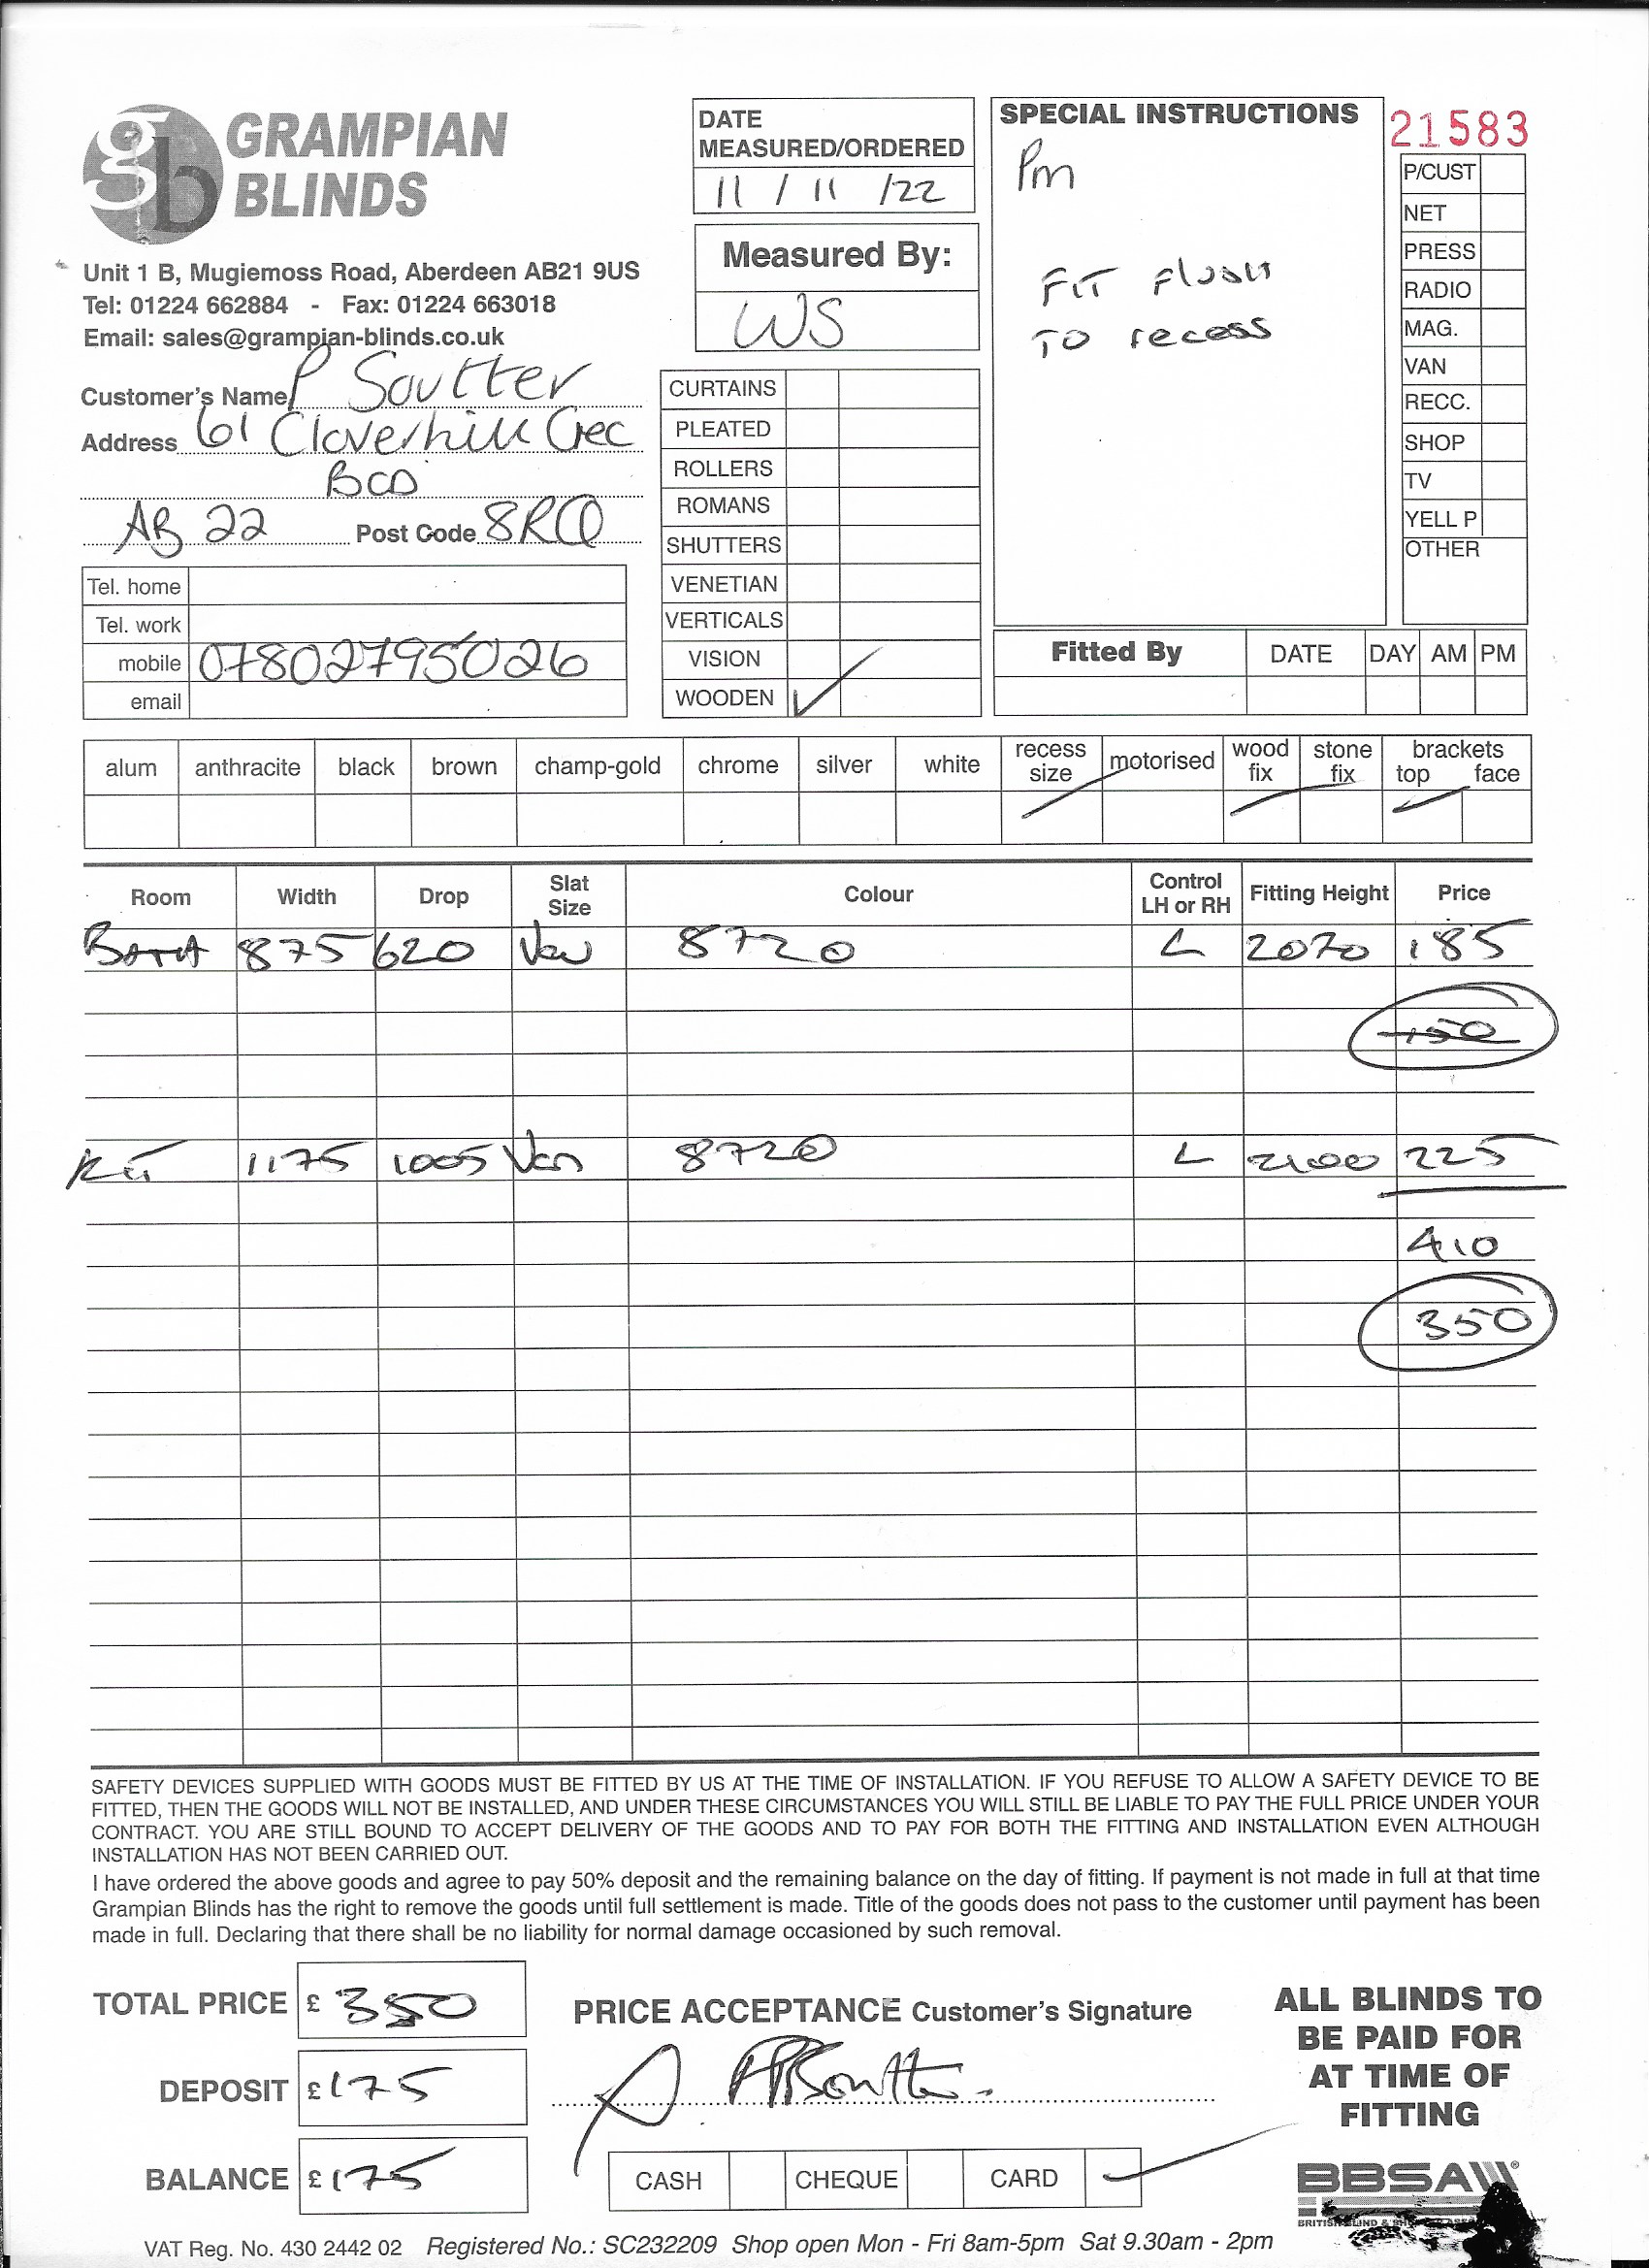 gb GRAMPIAN
BLINDS
Unit 1 B, Mugiemoss Road, Aberdeen AB21 9US
Tel: 01224 662884 - Fax: 01224 663018
Email: sales@grampian-blinds.co.uk
Customer's Name P Soutter
Address 61 Cloverhill Crec
BOD
AB 22 Post Code 8RQ
Tel. home
Tel. work
mobile 07802795026
email
DATE
MEASURED/ORDERED
11 / 11 /22
Measured By:
WS
CURTAINS
PLEATED
ROLLERS
ROMANS
SHUTTERS
VENETIAN
VERTICALS
VISION
WOODEN ✓
SPECIAL INSTRUCTIONS
Pm
FIT Flush
TO recess
21583
P/CUST
NET
PRESS
RADIO
MAG.
VAN
RECC.
SHOP
TV
YELL P
OTHER
Fitted By DATE DAY AM PM
alum anthracite black brown champ-gold chrome silver white recess size motorised wood fix stone fix brackets top face
Room Width Drop Slat Size Colour Control LH or RH Fitting Height Price
BATH 875 620 Ven 8720 L 2070 185
150
Kit 1175 1005 Ven 8720 L 2100 225
410
350
SAFETY DEVICES SUPPLIED WITH GOODS MUST BE FITTED BY US AT THE TIME OF INSTALLATION. IF YOU REFUSE TO ALLOW A SAFETY DEVICE TO BE
FITTED, THEN THE GOODS WILL NOT BE INSTALLED, AND UNDER THESE CIRCUMSTANCES YOU WILL STILL BE LIABLE TO PAY THE FULL PRICE UNDER YOUR
CONTRACT. YOU ARE STILL BOUND TO ACCEPT DELIVERY OF THE GOODS AND TO PAY FOR BOTH THE FITTING AND INSTALLATION EVEN ALTHOUGH
INSTALLATION HAS NOT BEEN CARRIED OUT.
I have ordered the above goods and agree to pay 50% deposit and the remaining balance on the day of fitting. If payment is not made in full at that time
Grampian Blinds has the right to remove the goods until full settlement is made. Title of the goods does not pass to the customer until payment has been
made in full. Declaring that there shall be no liability for normal damage occasioned by such removal.
TOTAL PRICE £ 350
DEPOSIT £ 175
BALANCE £ 175
PRICE ACCEPTANCE Customer's Signature
CASH CHEQUE CARD ✓
ALL BLINDS TO
BE PAID FOR
AT TIME OF
FITTING
BBSA
VAT Reg. No. 430 2442 02 Registered No.: SC232209 Shop open Mon - Fri 8am-5pm Sat 9.30am - 2pm